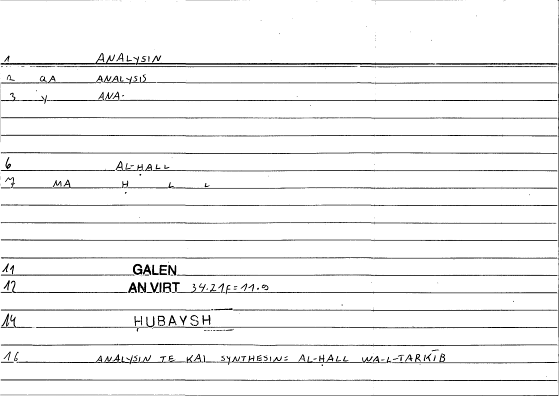 1 ANALYSIN
2 aA ANALYSIS
3 y ANA.
6 AL-ḤALL
7 MA Ḥ L L
11 GALEN
12 AN.VIRT 34.21f=11.9
14 ḤUBAYSH
16 ANALYSIN TE KAI SYNTHESIN= AL-ḤALL WA-L-TARKĪB